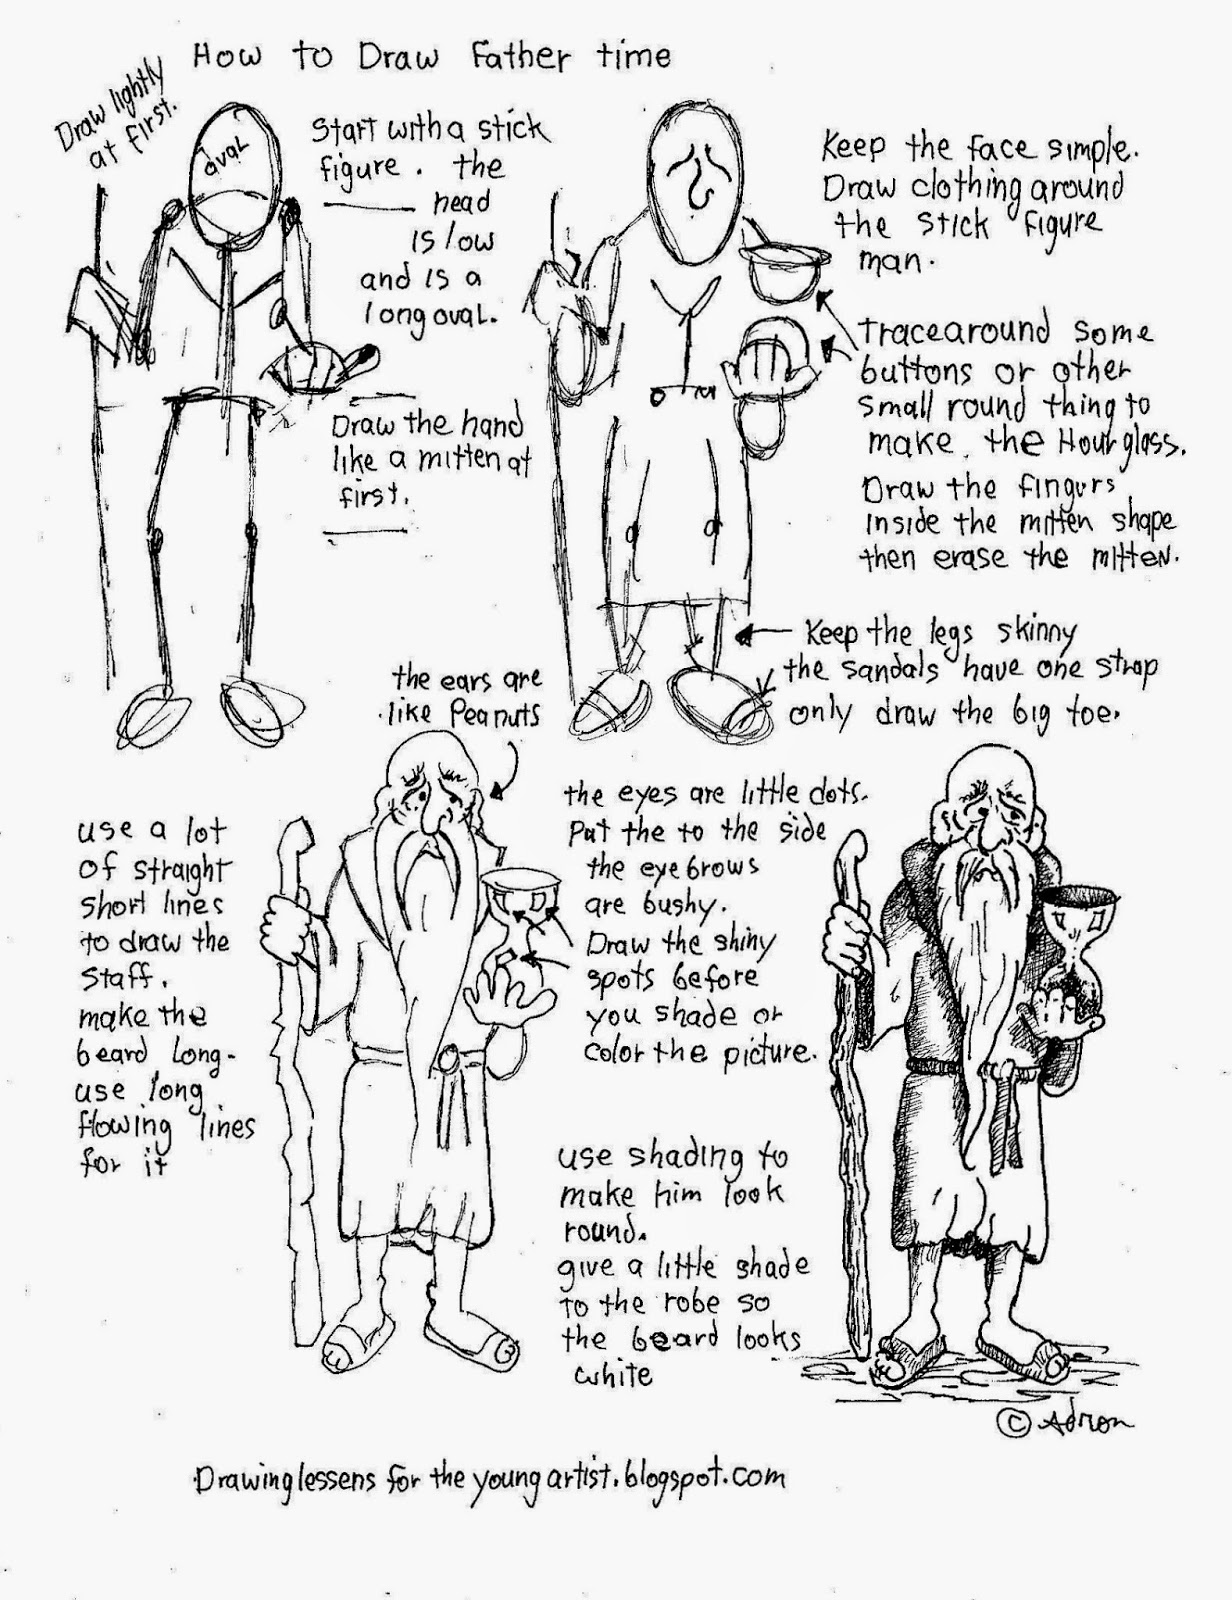 How to Draw Father time
Draw lightly
at first.
oval
Start with a stick
figure. the
head
is low
and is a
long oval.
Draw the hand
like a mitten at
first.
Keep the face simple.
Draw clothing around
the stick figure
man.
trace around some
buttons or other
small round thing to
make the Hourglass.
Draw the fingurs
inside the mitten shape
then erase the mitten.
Keep the legs skinny
the sandals have one strap
only draw the big toe.
the ears are
like Peanuts
use a lot
of straight
short lines
to draw the
staff.
make the
beard long-
use long
flowing lines
for it
the eyes are little dots.
Put the to the side
the eyebrows
are bushy.
Draw the shiny
spots before
you shade or
color the picture.
use shading to
make him look
round.
give a little shade
to the robe so
the beard looks
white
© Adron
Drawinglessens for the young artist.blogspot.com